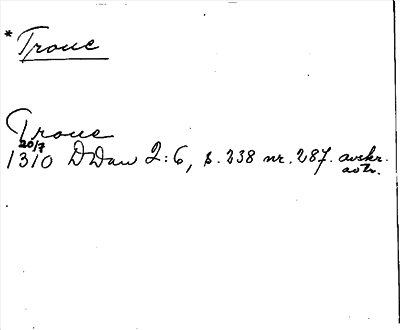 *Troue
Troue
20/7
1310 DDan 2:6, s. 238 nr. 287. avskr.
avtr.